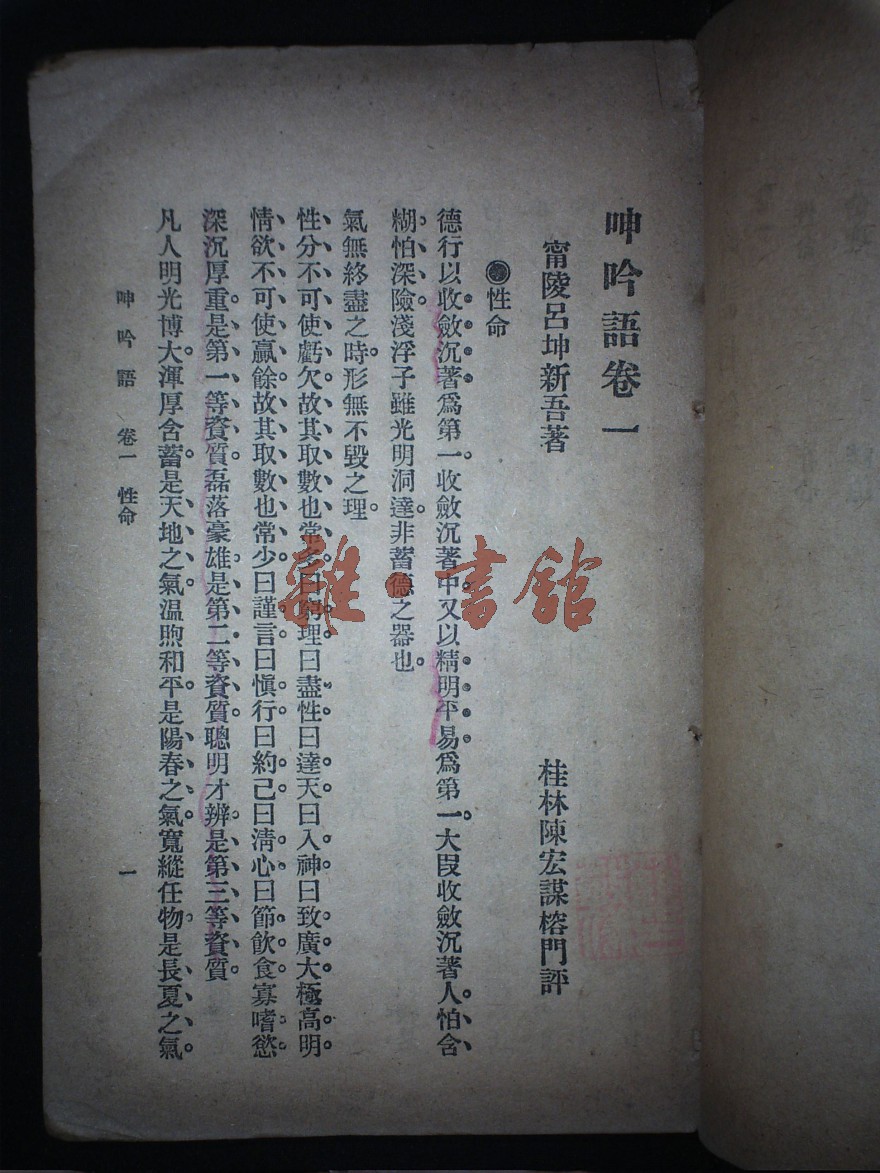 呻吟語卷一
甯陵呂坤新吾著 桂林陳宏謀榕門評
性命
德行以收斂沉著爲第一收斂沉著中又以精明平易爲第一大段收斂沉著人怕含
糊怕深險淺浮子雖光明洞達非蓄德之器也
氣無終盡之時形無不毀之理
性分不可使虧欠故其取數也常多曰窮理曰盡性曰達天曰入神曰致廣大極高明
情欲不可使贏餘故其取數也常少曰謹言曰愼行曰約己曰淸心曰節飲食寡嗜慾
深沉厚重是第一等資質磊落豪雄是第二等資質聰明才辨是第三等資質
凡人明光博大渾厚含蓄是天地之氣溫煦和平是陽春之氣寬縱任物是長夏之氣
呻吟語 卷一 性命 一
雜·書館